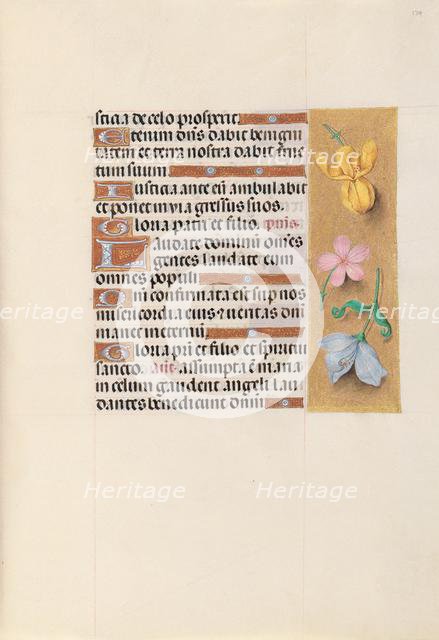 sticia de celo prosperit.
Etenim dñs dabit benigni
tatem et terra nostra dabit fruc
tum suum.
Iusticia ante eũ ambulabit
et ponet in via gressus suos.
Gloria patri et filio. psis.
Laudate dominũ om̃es
gentes laudate eum
omnes populi
Qm̃ confirmata est sup nos
misericordia eius ⁊ ueritas dñi
manet ineternũ
Gloria pri et filio et spiritui
sancto. añ. assumpta ẽ maria
in celum gaudent angeli lau
dantes benedicunt dnm
Heritage
Heritage
Heritage
Heritage
Heritage
Heritage